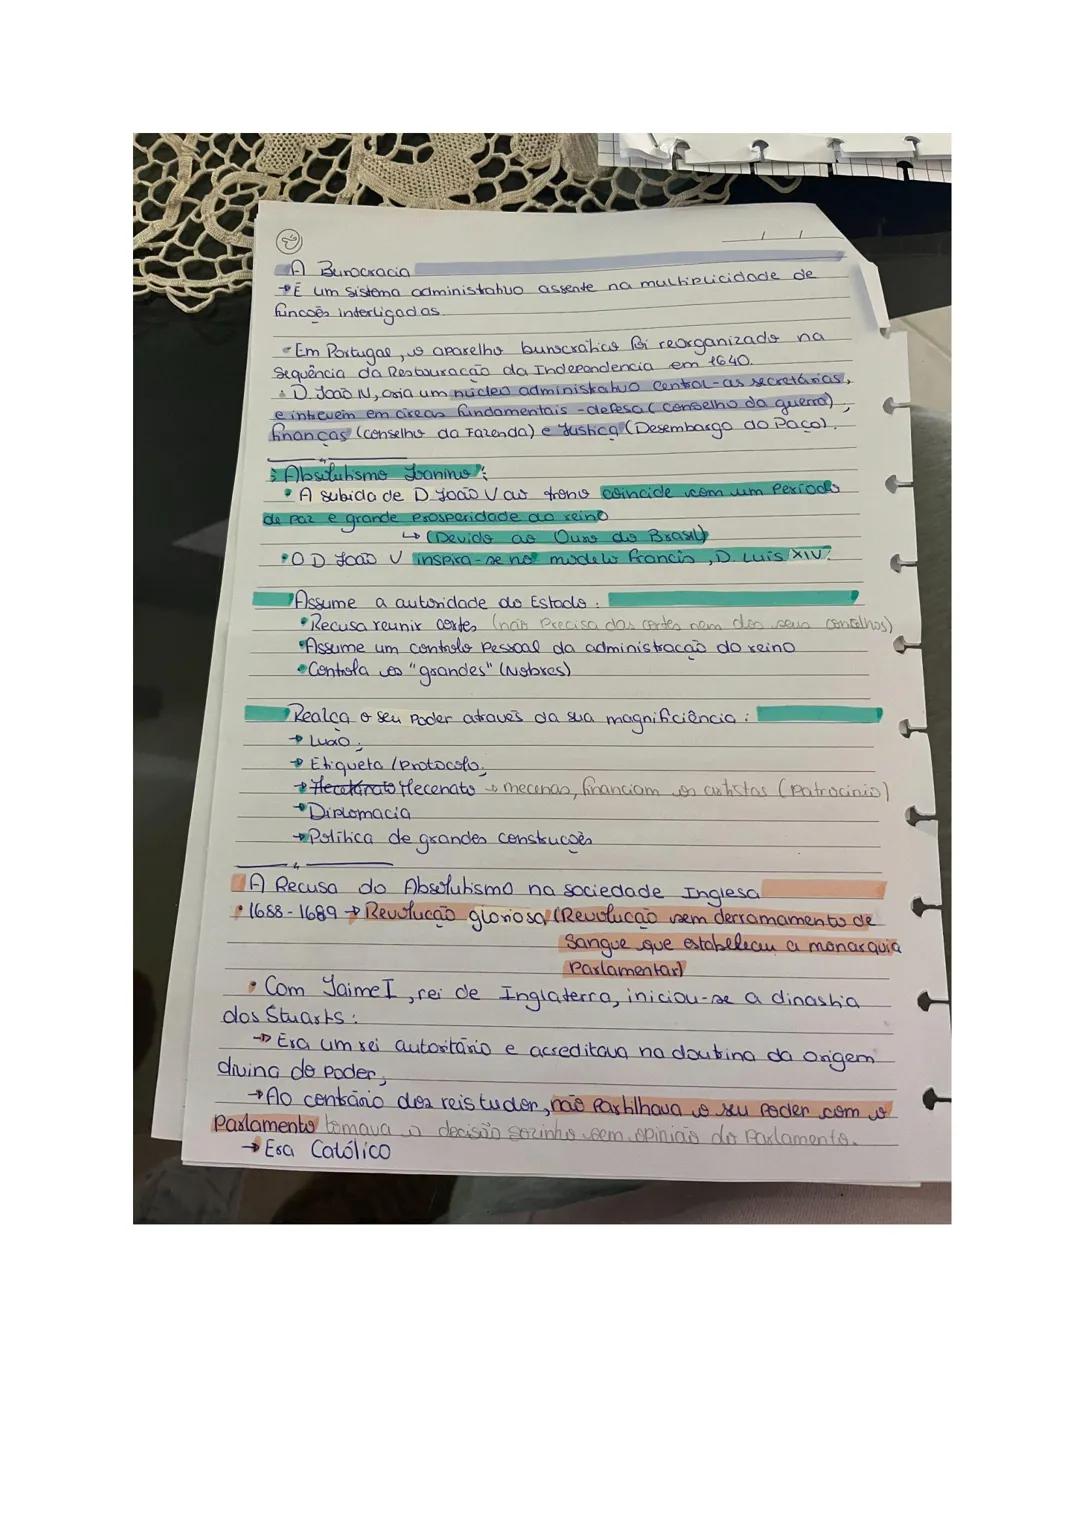 A Burocracia
→É um sistema administrativo assente na multiplicidade de
funções interligadas.
Em Portugal, o aparelho burocrático foi reorganizado na
sequência da Restauração da Independencia em 1640.
D. João IV, cria um núcleo administrativo central - as secretárias,
e intrevem em areas fundamentais - defesa (conselho da guerra),
finanças (conselho da Fazenda) e Justiça (Desembargo do Paço).
Absolutismo Joanino:
• A subida de D. João V ao trono coincide com um Periodo
de paz e grande prosperidade do reino
↳ (Devido ao Ouro do Brasil)
• O D. João V inspira-se no modelo francis, D. Luis XIV.
Assume a autoridade do Estado:
• Recusa reunir cortes (não Precisa das cortes nem dos seus concelhos)
• Assume um controlo pessoal da administração do reino
• Controla os "grandes" (Nobres)
Realça o seu poder através da sua magnificiência:
→ Luxo;
→ Etiqueta / Protocolo;
→ Mecenato → mecenas, financiam os artistas (Patrocinio)
→ Diplomacia
→ Politica de grandes construções
A Recusa do Absolutismo na sociedade Inglesa
• 1688-1689 → Revolução gloriosa (Revolução sem derramamento de
Sangue que estabeleceu a monarquia
Parlamentar)
• Com Jaime I, rei de Inglaterra, iniciou-se a dinastia
dos Stuarts:
→ Era um rei autoritário e acreditava na doutrina da origem
divina do poder,
→ Ao contrário dos reis tudor, não Partilhava o seu Poder com o
Parlamento tomava a decisão sozinho sem opinião do Parlamento.
→ Era Católico